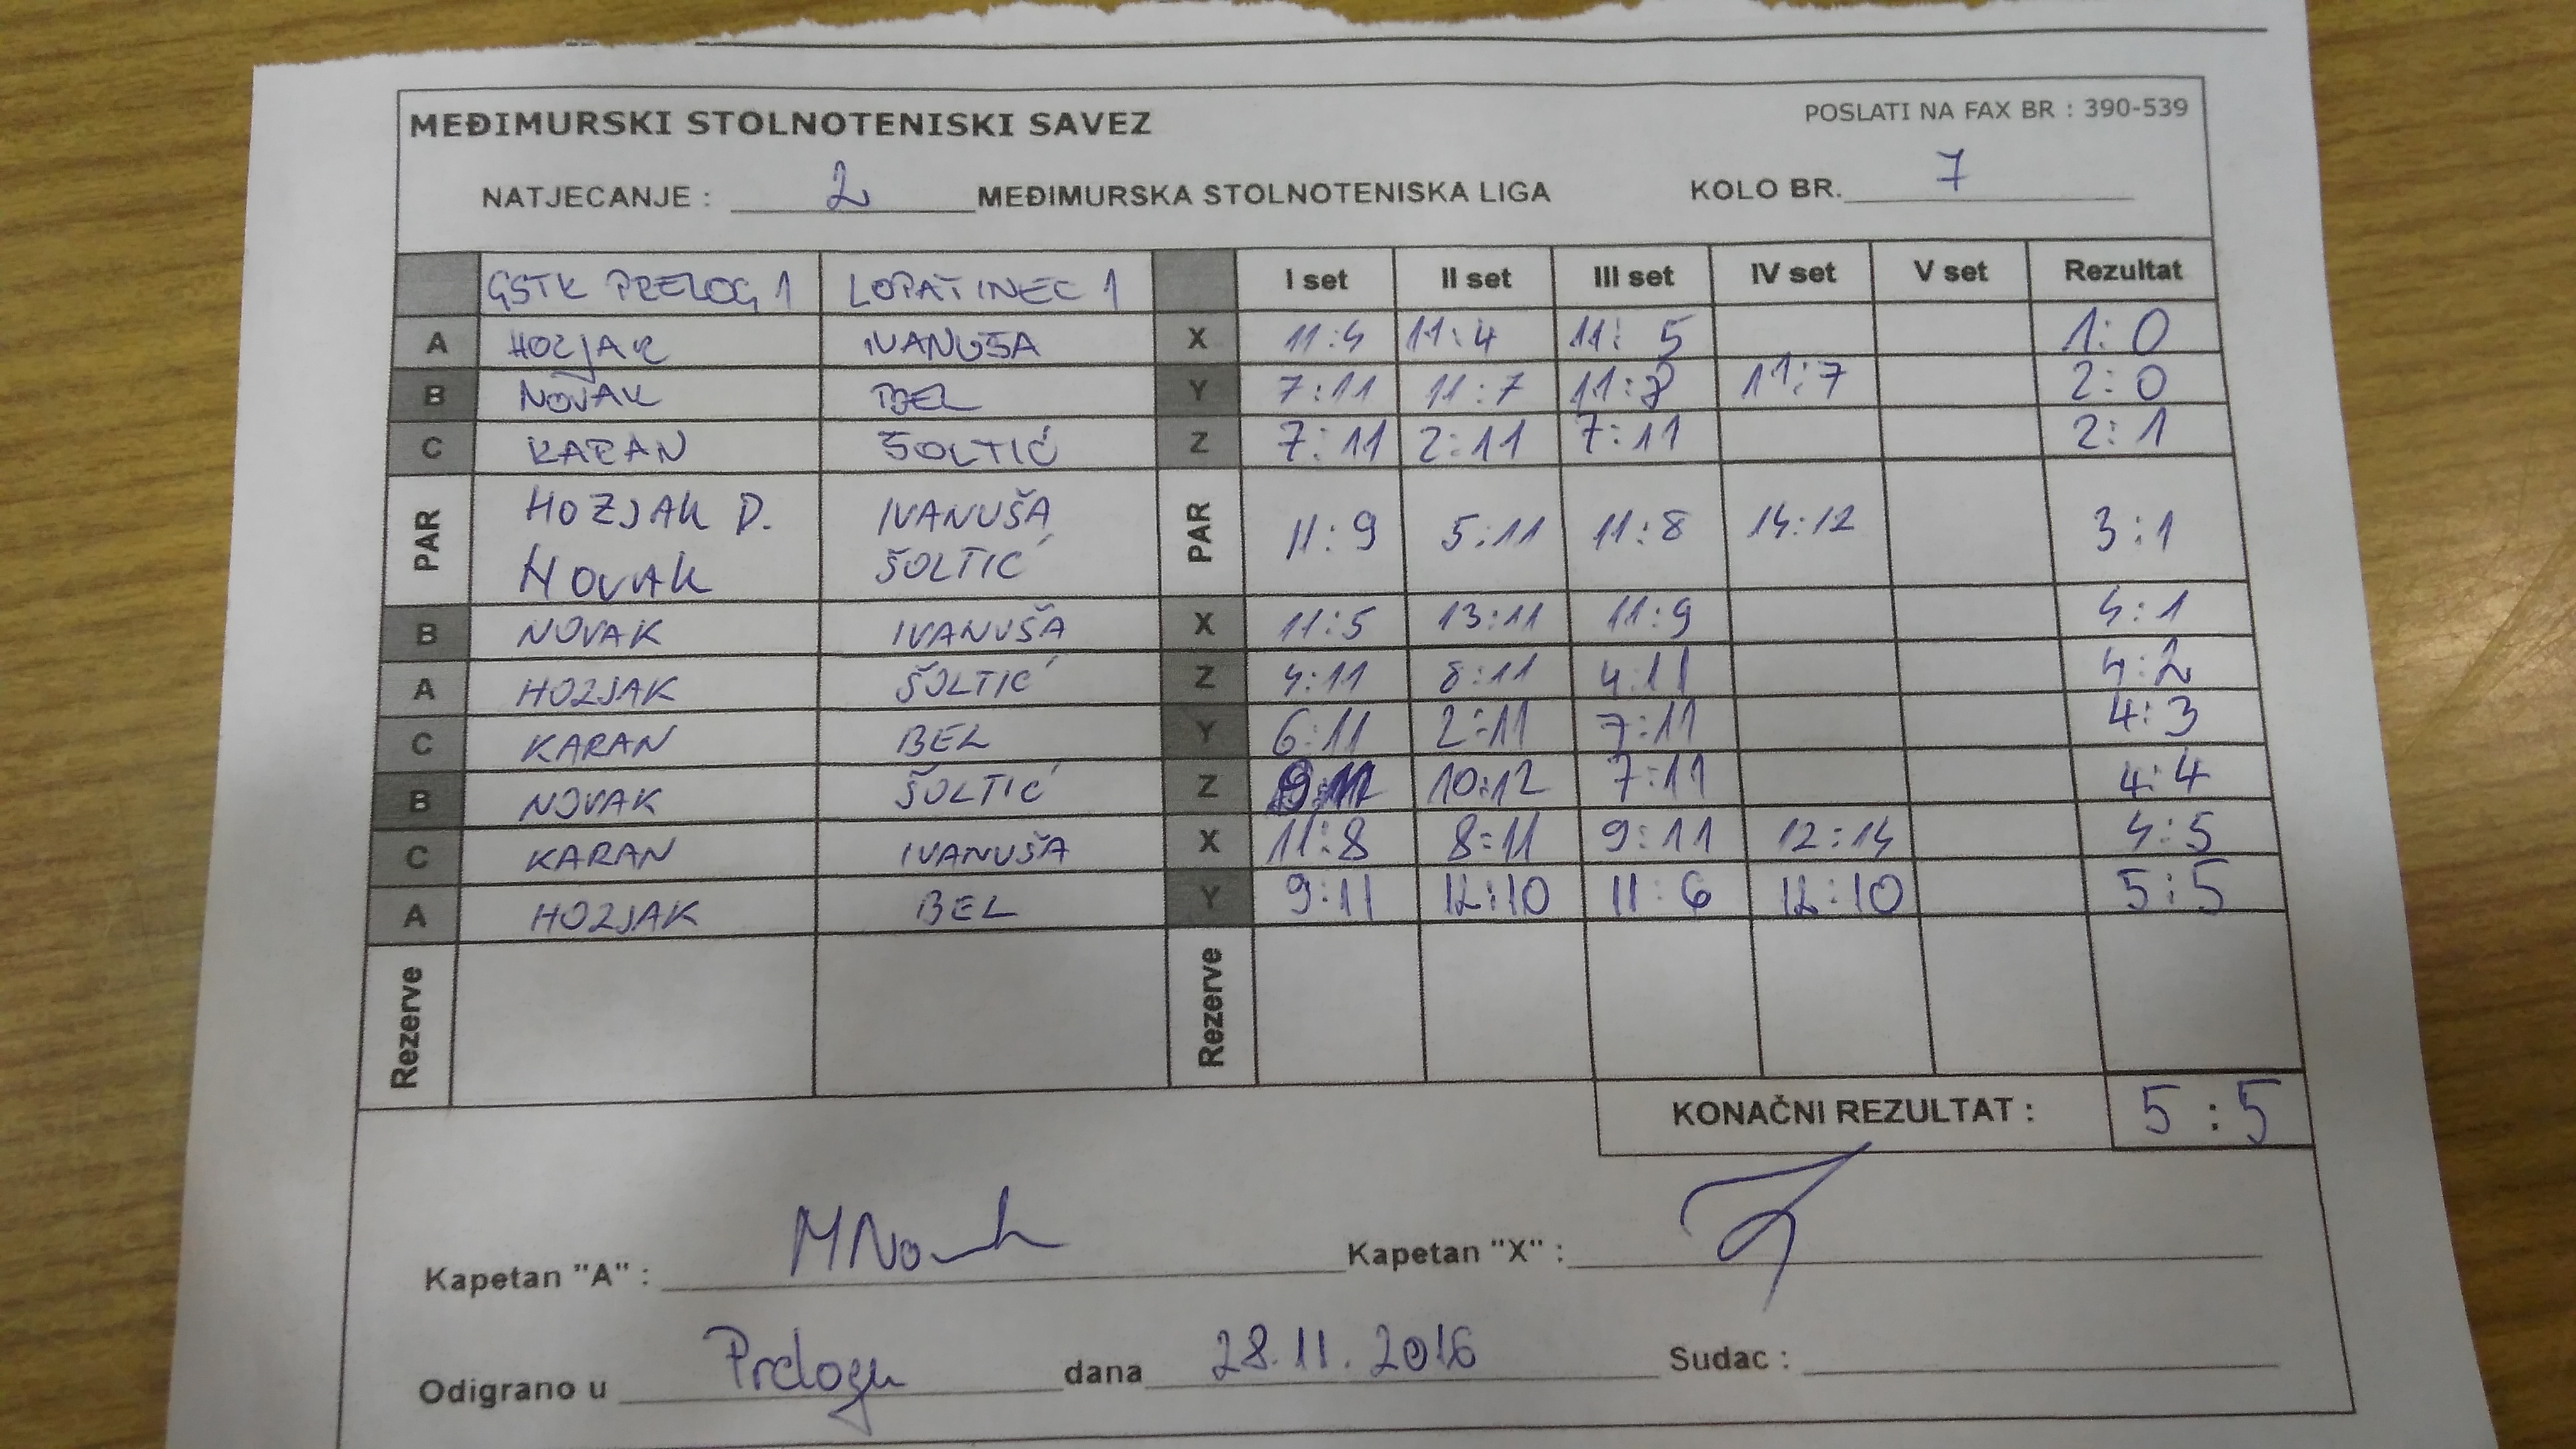 MEĐIMURSKI STOLNOTENISKI SAVEZ POSLATI NA FAX BR : 390-539
NATJECANJE : 2 MEĐIMURSKA STOLNOTENISKA LIGA KOLO BR. 7
GSTK PRELOG 1 LOPATINEC 1 I set II set III set IV set V set Rezultat
A HOZJAK IVANUŠA X 11:4 11:4 11:5 1:0
B NOVAK BEL Y 7:11 11:7 11:8 11:7 2:0
C KARAN ŠOLTIĆ Z 7:11 2:11 7:11 2:1
PAR HOZJAK D. IVANUŠA PAR 11:9 5:11 11:8 14:12 3:1
NOVAK ŠOLTIĆ
B NOVAK IVANUŠA X 11:5 13:11 11:9 4:1
A HOZJAK ŠOLTIĆ Z 4:11 8:11 4:11 4:2
C KARAN BEL Y 6:11 2:11 7:11 4:3
B NOVAK ŠOLTIĆ Z 9:11 10:12 7:11 4:4
C KARAN IVANUŠA X 11:8 8:11 9:11 12:14 4:5
A HOZJAK BEL Y 9:11 12:10 11:6 12:10 5:5
Rezerve Rezerve
KONAČNI REZULTAT : 5:5
Kapetan "A" : MNovak Kapetan "X" :
Odigrano u Prelogu dana 28.11.2016 Sudac :